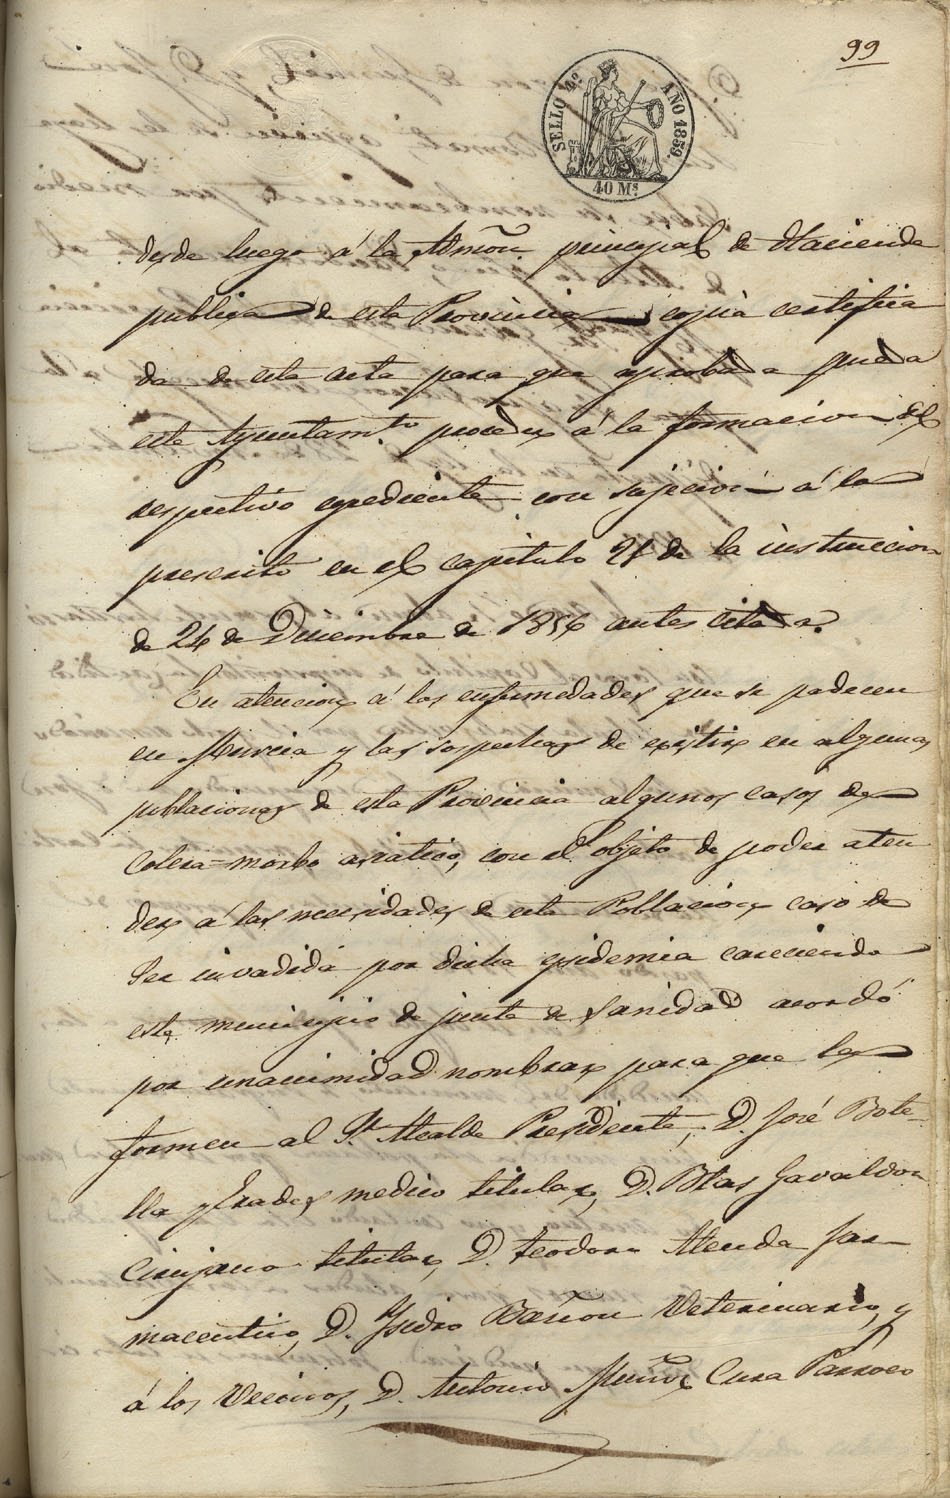 99
SELLO 4º AÑO 1859.
40 Ms
desde luego á la Admōn. principal de Hacienda
publica de esta Provincia copia certifica
da de esta acta para que aprobada pueda
este Ayuntamto. proceder á la formacion del
respectivo expediente con sujecion á lo
prescrito en el capitulo 24 de la instruccion
de 24 de Diciembre de 1856 antes citada.
En atencion á las enfermedades que se padecen
en Murcia y las sospechas de existir en algunas
poblaciones de esta Provincia algunos casos de
Colera=morbo asiatico, con el objeto de poder aten
der á las necesidades de esta Poblacion caso de
ser invadida por dicha epidemia careciendo
este municipio de junta de sanidad acordó
por unanimidad nombrar para que la
formen al Sr. Alcalde Presidente, D. José Bote-
lla y Prades medico titular, D. Blas Gavaldon
Cirujano titular, D. Teodoro Alenda Far-
maceutico, D. Ysidro Bañon Veterinario, y
á los Vecinos, D. Antonio Muñoz Cura Parroco